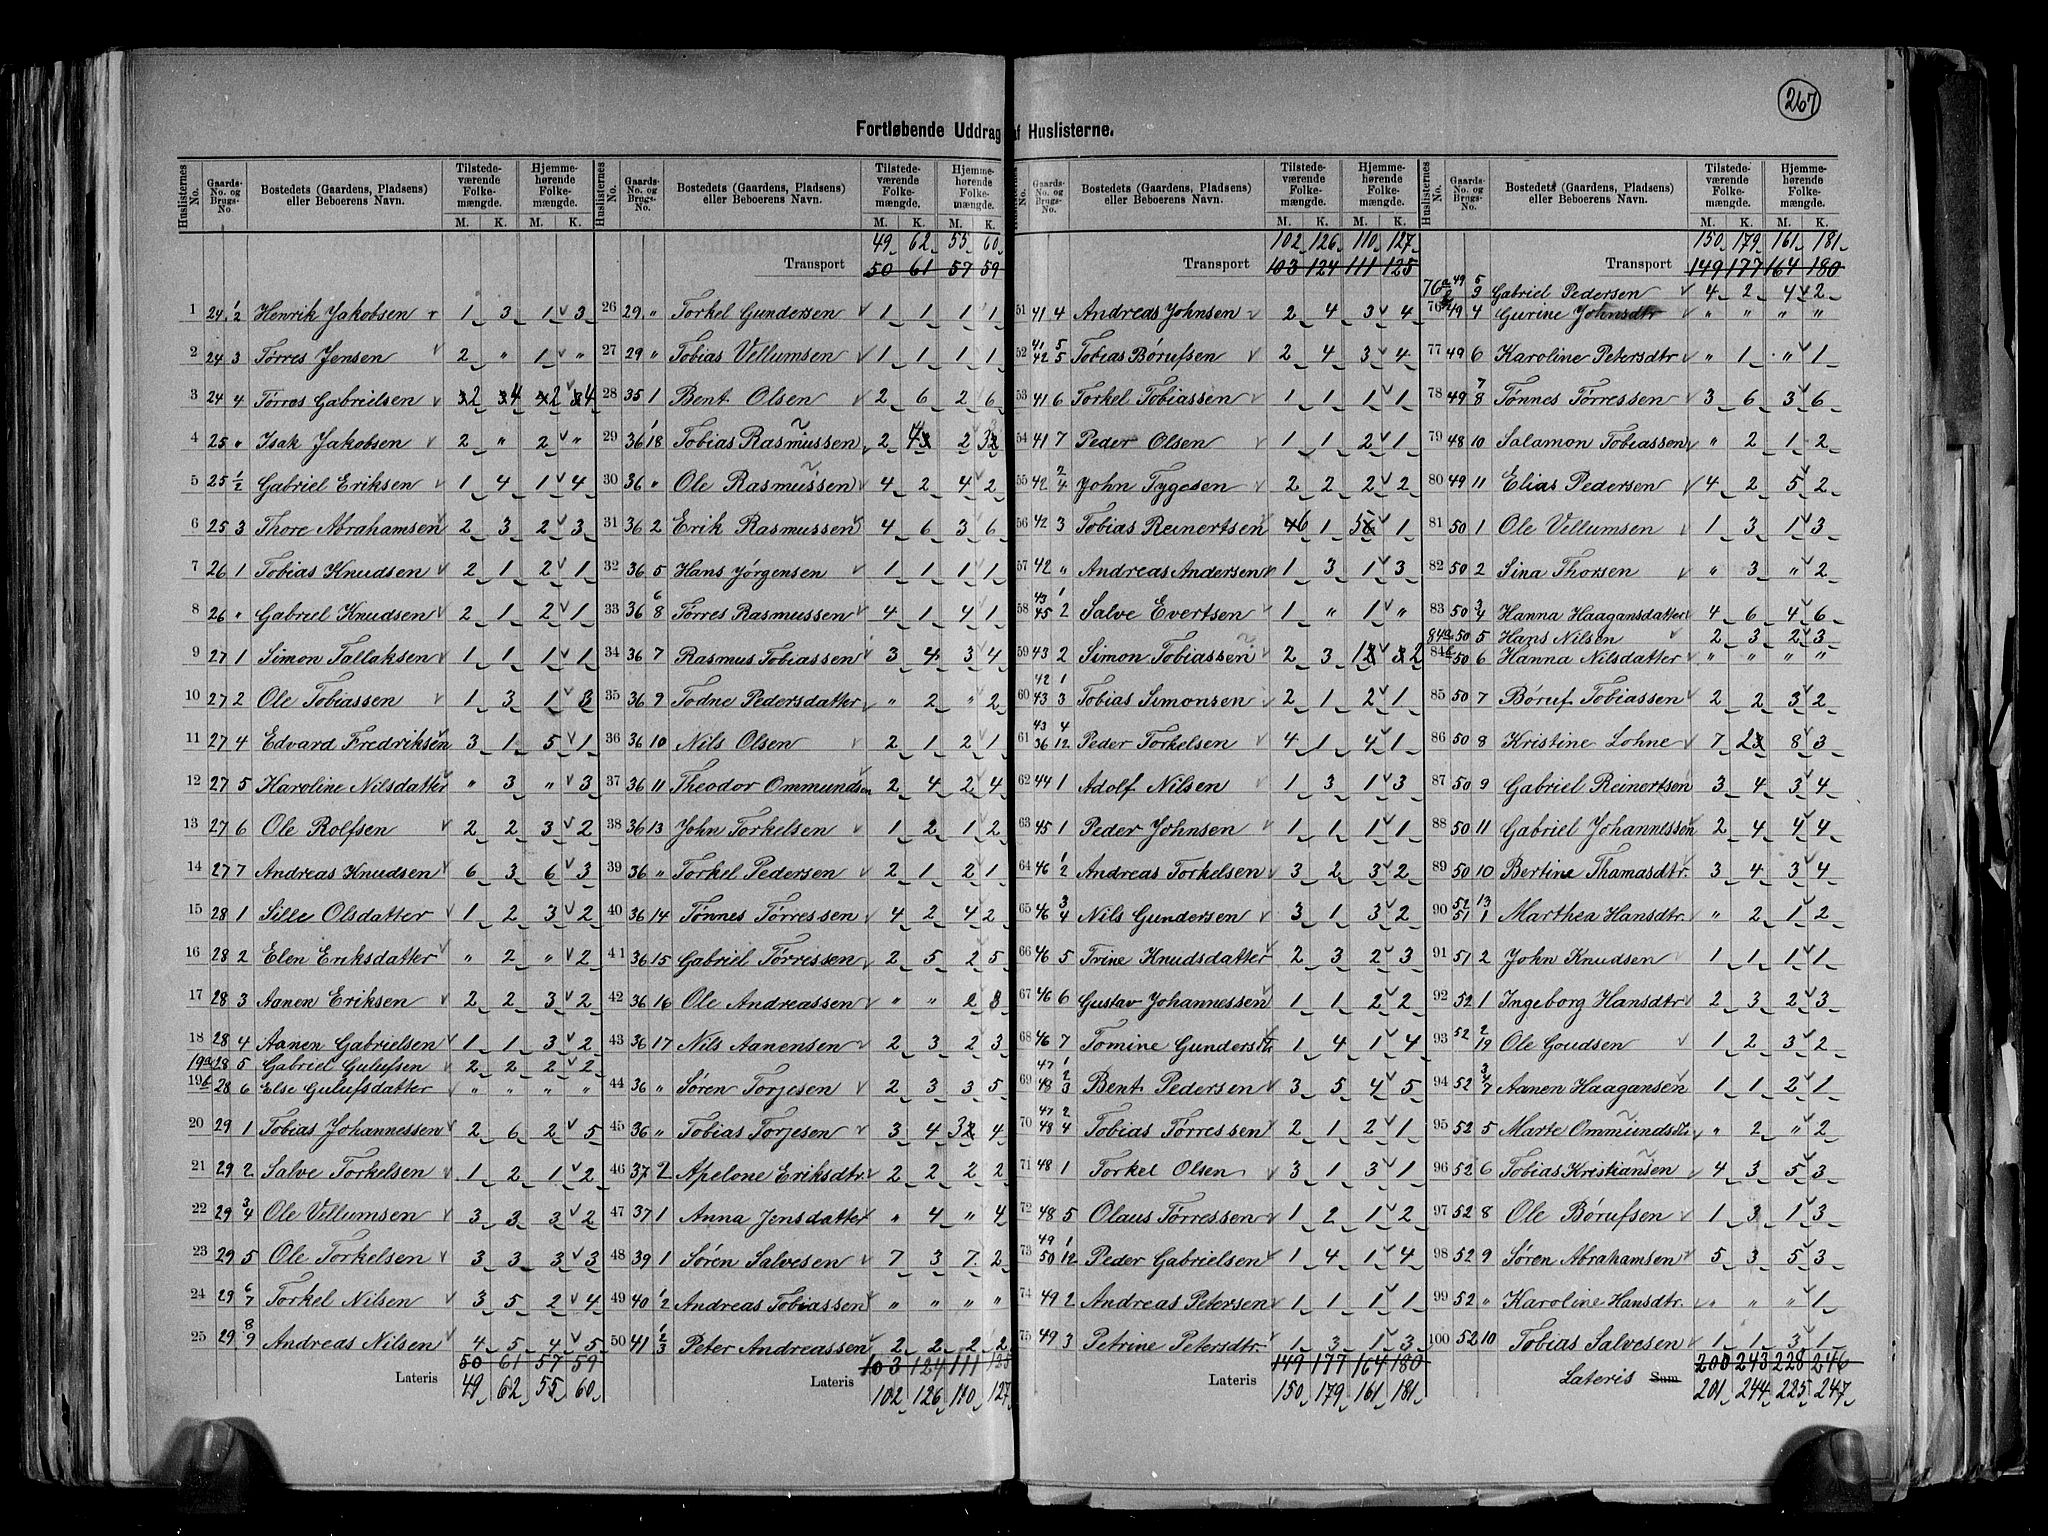 267
Fortløbende Uddrag af Huslisterne.
Huslisternes No. Gaards-No. og Brugs-No. Bostedets (Gaardens, Pladsens) eller Beboerens Navn. Tilstedeværende Folkemængde. M. K. Hjemmehørende Folkemængde. M. K.
1 24 1/2 Henrik Jakobsen 1 3 1 3
2 24 3 Tørres Jensen 2 " 1 "
3 24 4 Tørres Gabrielsen 2 4 2 4
4 25 " Isak Jakobsen 2 " 2 "
5 25 1/2 Gabriel Eriksen 1 4 1 4
6 25 3 Thore Abrahamsen 2 3 2 3
7 26 1 Tobias Knudsen 2 1 2 1
8 26 " Gabriel Knudsen 2 1 2 1
9 27 1 Simon Tallaksen 1 1 1 1
10 27 2 Ole Tobiassen 1 3 1 3
11 27 4 Edvard Fredriksen 3 1 5 1
12 27 5 Karoline Nilsdatter " 3 " 3
13 27 6 Ole Rolfsen 2 2 3 2
14 27 7 Andreas Knudsen 6 3 6 3
15 28 1 Sille Olsdatter 1 2 3 2
16 28 2 Elen Eriksdatter " 2 " 2
17 28 3 Aanen Eriksen 2 2 3 2
18 28 4 Aanen Gabrielsen 1 1 3 2
19a 28 5 Gabriel Gulufsen 2 2 2 2
19b 28 6 Else Gulufsdatter " " " "
20 29 1 Tobias Johannessen 2 6 2 5
21 29 2 Salve Torkelsen 1 2 1 2
22 29 3/4 Ole Vellumsen 3 3 3 2
23 29 5 Ole Torkelsen 3 3 3 3
24 29 6/7 Torkel Nilsen 3 5 2 4
25 29 8/9 Andreas Nilsen 4 5 4 5
50 61 57 59
Lateris 49 62 55 60
Huslisternes No. Gaards-No. og Brugs-No. Bostedets (Gaardens, Pladsens) eller Beboerens Navn. Tilstedeværende Folkemængde. M. K. Hjemmehørende Folkemængde. M. K.
49 62 55 60
Transport 50 61 57 59
26 29 " Torkel Gundersen 1 1 1 1
27 29 " Tobias Vellumsen 1 1 1 1
28 35 1 Bent Olsen 2 6 2 6
29 36 1/18 Tobias Rasmussen 2 4 2 3
30 36 " Ole Rasmussen 4 2 4 2
31 36 2 Erik Rasmussen 4 6 3 6
32 36 5 Hans Jørgensen 1 1 1 1
33 36 6/8 Tørres Rasmussen 4 1 4 1
34 36 7 Rasmus Tobiassen 3 4 3 4
35 36 9 Todne Pedersdatter " 2 " 2
36 36 10 Nils Olsen 2 1 2 1
37 36 11 Theodor Ommundsen 2 4 2 4
38 36 13 John Torkelsen 1 2 1 2
39 36 " Torkel Pedersen 2 1 2 1
40 36 14 Tønnes Tørressen 4 2 4 2
41 36 15 Gabriel Tørressen 2 5 2 5
42 36 16 Ole Andreassen " " 2 3
43 36 17 Nils Aanensen 2 3 2 3
44 36 " Søren Torjesen 2 3 3 5
45 36 " Tobias Torjesen 3 4 3 4
46 37 2 Apelone Eriksdtr. 2 2 2 2
47 37 1 Anna Jensdatter " 4 " 4
48 39 1 Søren Salvesen 7 3 7 2
49 40 1/2 Andreas Tobiassen " " " "
50 41 2/3 Peter Andreassen 2 2 2 2
103 124 111 125
Lateris 102 126 110 127
Huslisternes No. Gaards-No. og Brugs-No. Bostedets (Gaardens, Pladsens) eller Beboerens Navn. Tilstedeværende Folkemængde. M. K. Hjemmehørende Folkemængde. M. K.
102 126 110 127
Transport 103 124 111 125
51 41 4 Andreas Johnsen 2 4 3 4
52 41 5 42 5 Tobias Børufsen 2 4 3 4
53 41 6 Torkel Tobiassen 1 1 1 1
54 41 7 Peder Olsen 1 1 2 1
55 42 2/4 John Tygesen 2 2 2 2
56 42 3 Tobias Reinertsen 6 1 5 1
57 42 " Andreas Andersen 1 3 1 3
58 43 1 45 2 Salve Evertsen 1 " 1 "
59 43 2 Simon Tobiassen 2 3 1 2
60 42 1 43 3 Tobias Simonsen 2 1 2 1
61 43 4 36 12 Peder Torkelsen 4 1 4 1
62 44 1 Adolf Nilsen 1 3 1 3
63 45 1 Peder Johnsen 1 1 1 1
64 46 1/2 Andreas Torkelsen 3 2 3 2
65 46 3/4 Nils Gundersen 3 1 3 2
66 46 5 Trine Knudsdatter 2 3 2 3
67 46 6 Gustav Johannessen 1 1 2 2
68 46 7 Tomine Gundersdtr 1 4 1 4
69 47 1 48 2/3 Bent Pedersen 3 5 4 5
70 47 2 48 4 Tobias Tørressen 2 1 2 1
71 48 1 Torkel Olsen 3 1 3 1
72 48 5 Olaus Tørressen 1 2 1 2
73 49 1 50 12 Peder Gabrielsen 1 4 1 4
74 49 2 Andreas Petersen 1 1 1 1
75 49 3 Petrine Petersdtr. 1 3 1 3
149 177 164 180
Lateris 150 179 161 181
Huslisternes No. Gaards-No. og Brugs-No. Bostedets (Gaardens, Pladsens) eller Beboerens Navn. Tilstedeværende Folkemængde. M. K. Hjemmehørende Folkemængde. M. K.
150 179 161 181
Transport 149 177 164 180
76a 49 5/9 Gabriel Pedersen 4 2 4 2
76b 49 4 Gurine Johnsdtr " " " "
77 49 6 Karoline Petersdtr " 1 " 1
78 49 7/8 Tønnes Tørressen 3 6 3 6
79 48 10 Salamon Tobiassen " 2 1 2
80 49 11 Elias Pedersen 4 2 5 2
81 50 1 Ole Vellumsen 1 3 1 3
82 50 2 Sina Thorsen " 3 " 2
83 50 3/4 Hanna Haagansdatter 4 6 4 6
84a 50 5 Hans Nilsen 2 3 2 3
84b 50 6 Hanna Nilsdatter " " " "
85 50 7 Børuf Tobiassen 2 2 3 2
86 50 8 Kristine Lohne 7 2 8 3
87 50 9 Gabriel Reinertsen 3 4 3 4
88 50 11 Gabriel Johannessen 2 4 4 4
89 50 10 Bertine Thamasdtr. 3 4 3 4
90 52 13 51 1 Marthea Hansdtr. " 2 1 2
91 51 2 John Knudsen 1 1 1 1
92 52 1 Ingeborg Hansdtr 2 3 2 3
93 52 2/19 Ole Goudsen 1 2 3 2
94 52 3/7 Aanen Haagansen 1 1 2 1
95 52 5 Marte Ommundsdtr " 2 " 2
96 52 6 Tobias Kristiansen 4 3 5 3
97 52 8 Ole Børufsen 1 3 1 3
98 52 9 Søren Abrahamsen 5 3 5 3
99 52 " Karoline Hansdtr. " " " 1
100 52 10 Tobias Salvesen 1 1 3 1
200 243 228 246
Lateris Sum 201 244 225 247